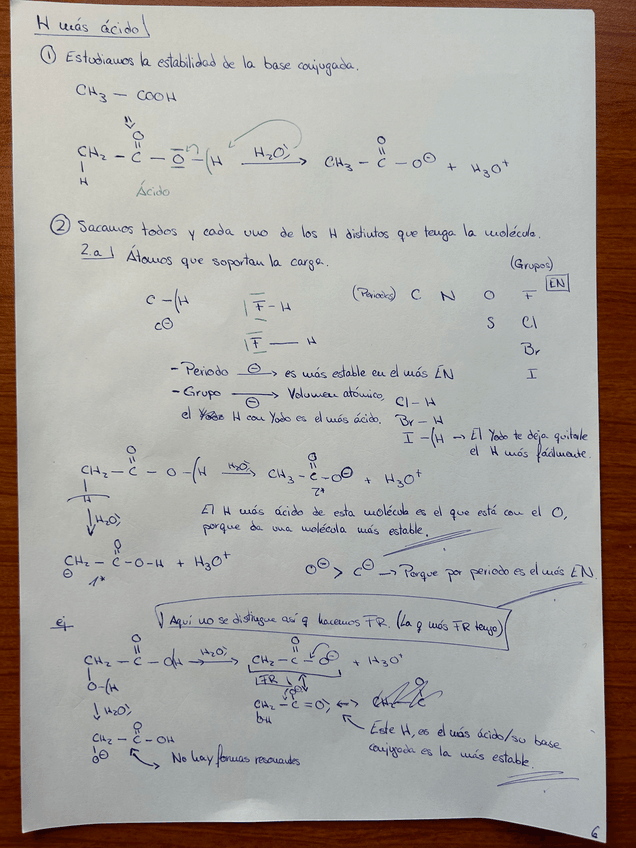 H más ácido
① Estudiamos la estabilidad de la base conjugada.
CH₃ — COOH
O
CH₂ — C — O — H H₂O: → CH₃ — C — O⊖ + H₃O⁺
H
Ácido
② Sacamos todos y cada uno de los H distintos que tenga la molécula.
2.a) Átomos que soportan la carga.
(Grupos)
C — H F — H (Periodos) C N O F EN
C⊖ S Cl
F — H Br
- Periodo ⊖ → es más estable en el más EN I
- Grupo ⊖ → Volumen atómico, Cl — H
el H con Yodo es el más ácido. Br — H
I — H → El Yodo te deja quitarle
el H más fácilmente.
CH₂ — C — O — H H₂O: → CH₃ — C — O⊖ + H₃O⁺
H 2*
H₂O: El H más ácido de esta molécula es el que está con el O,
porque da una molécula más estable.
CH₂ — C — O — H + H₃O⁺
⊖ 1* O⊖ > C⊖ → Porque por periodo es el más EN.
ej Aquí no se distingue así q hacemos FR. (La q más FR tenga)
CH₂ — C — OH H₂O: → CH₂ — C — O⊖ + H₃O⁺
O — H FR
H₂O: CH₂ — C = O: ↔
OH
CH₂ — C — OH Este H, es el más ácido/su base
O⊖ No hay formas resonantes conjugada es la más estable.
6